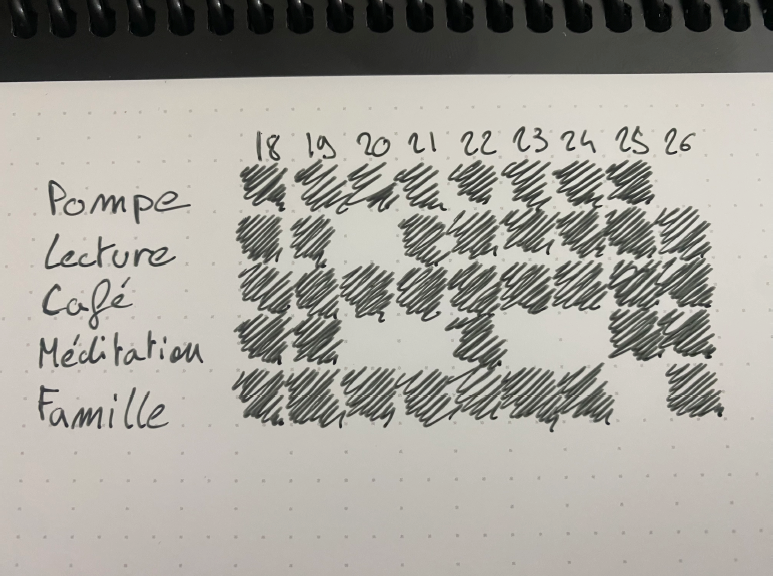 18 19 20 21 22 23 24 25 26
Pompe
Lecture
Café
Méditation
Famille